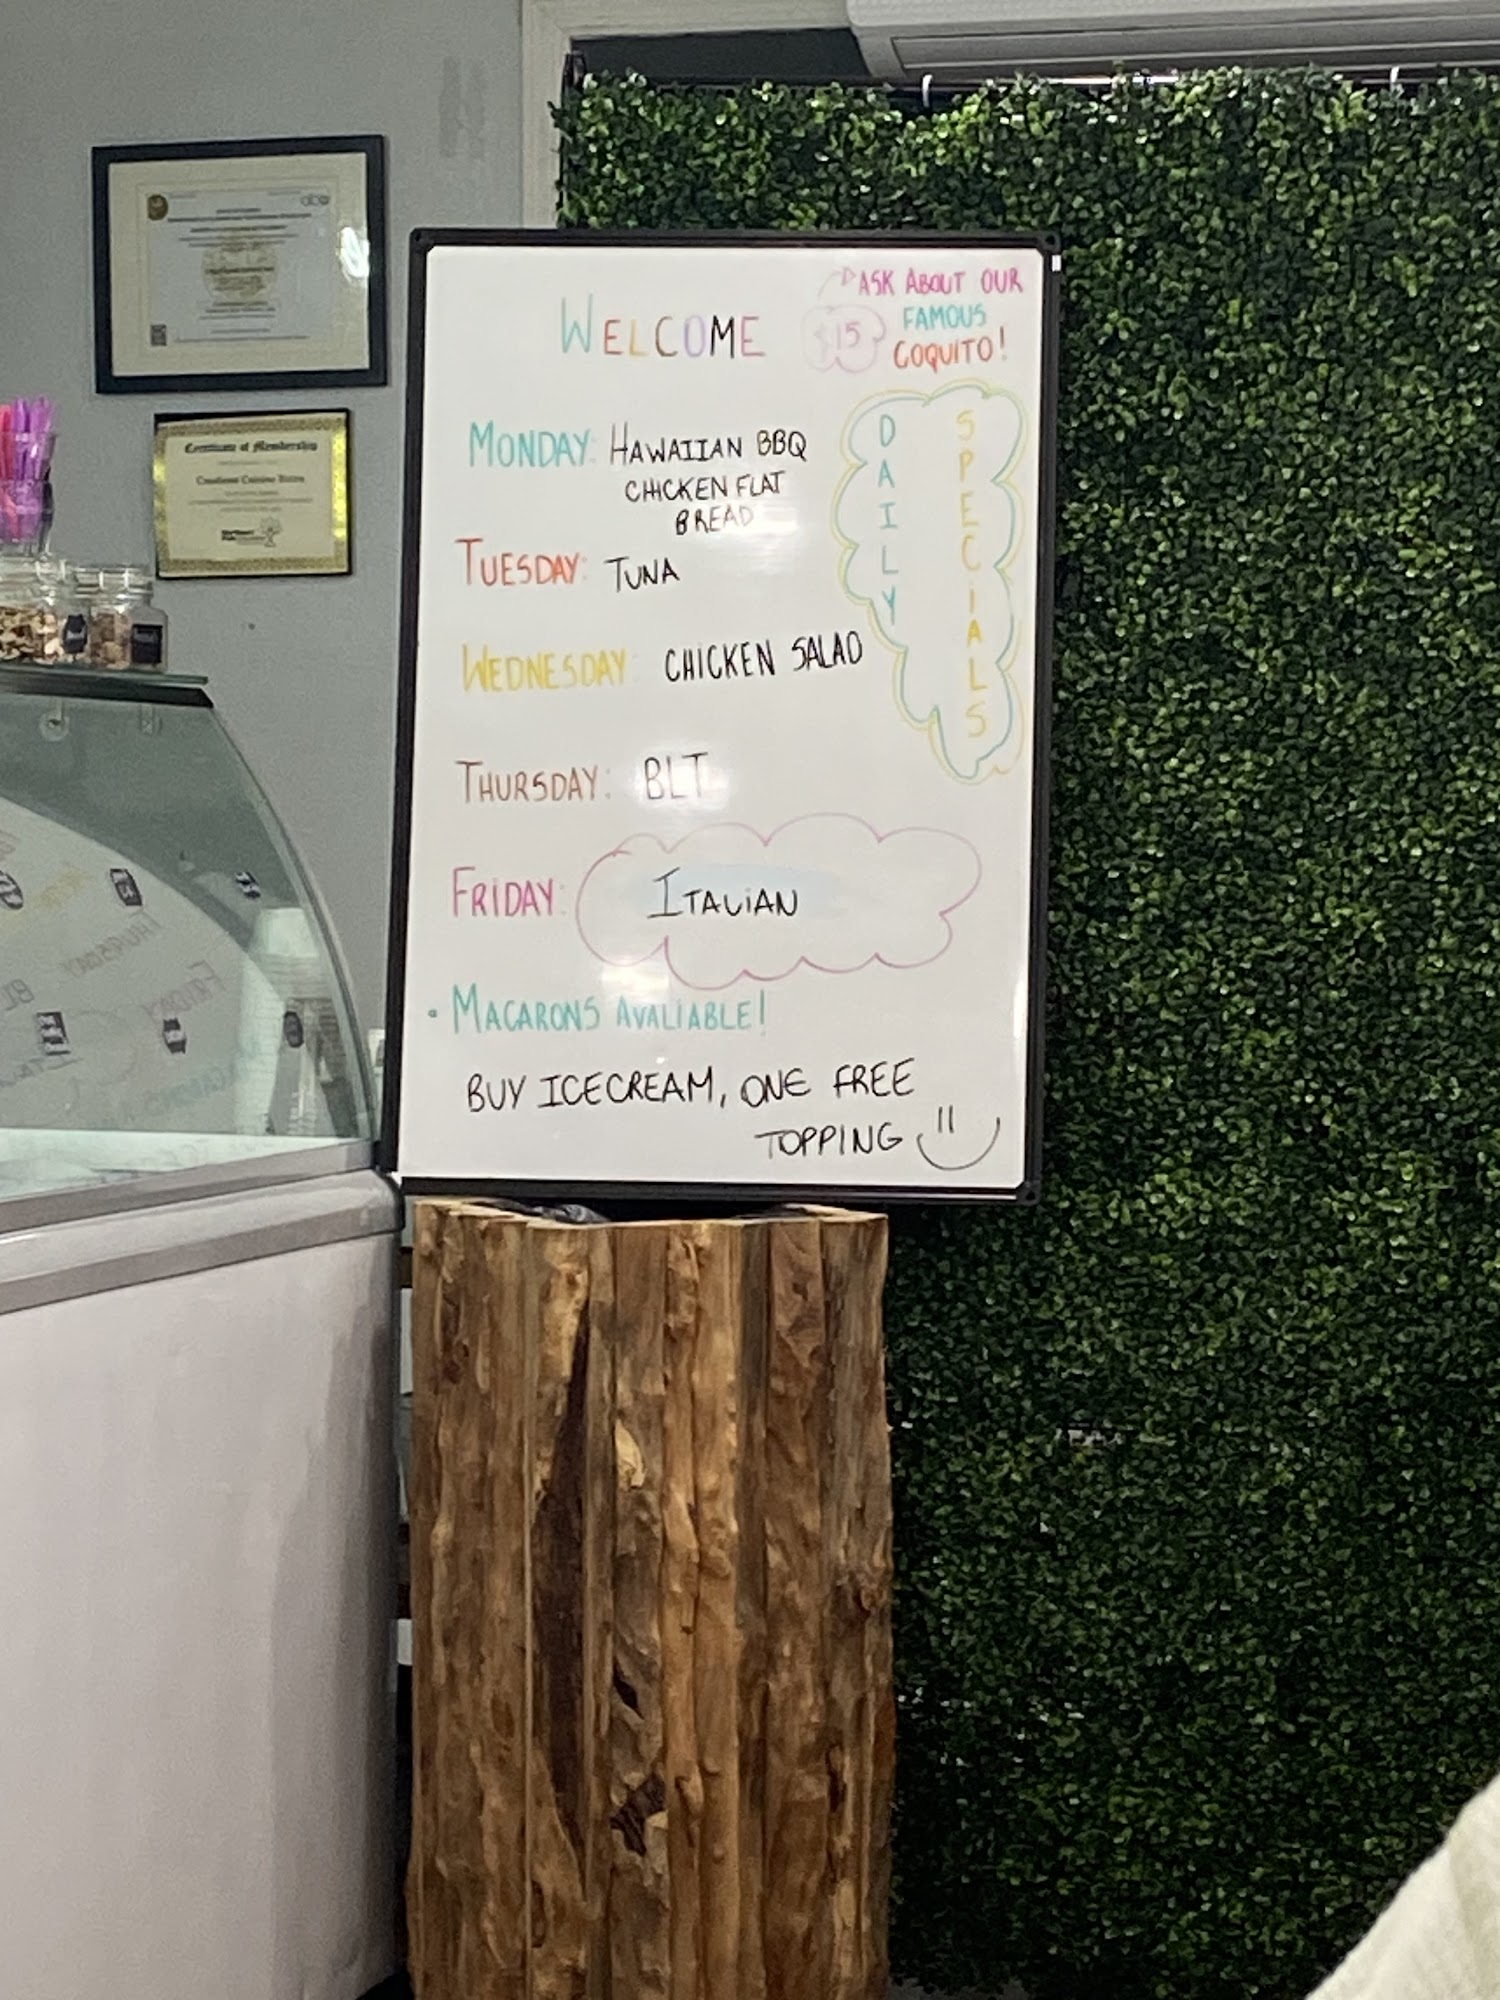 WELCOME
ASK ABOUT OUR
FAMOUS
COQUITO!
$15
DAILY
SPECIALS
MONDAY: HAWAIIAN BBQ
CHICKEN FLAT
BREAD
TUESDAY: TUNA
WEDNESDAY: CHICKEN SALAD
THURSDAY: BLT
FRIDAY: ITALIAN
• MACARONS AVALIABLE!
BUY ICECREAM, ONE FREE
TOPPING
Certificate of Membership